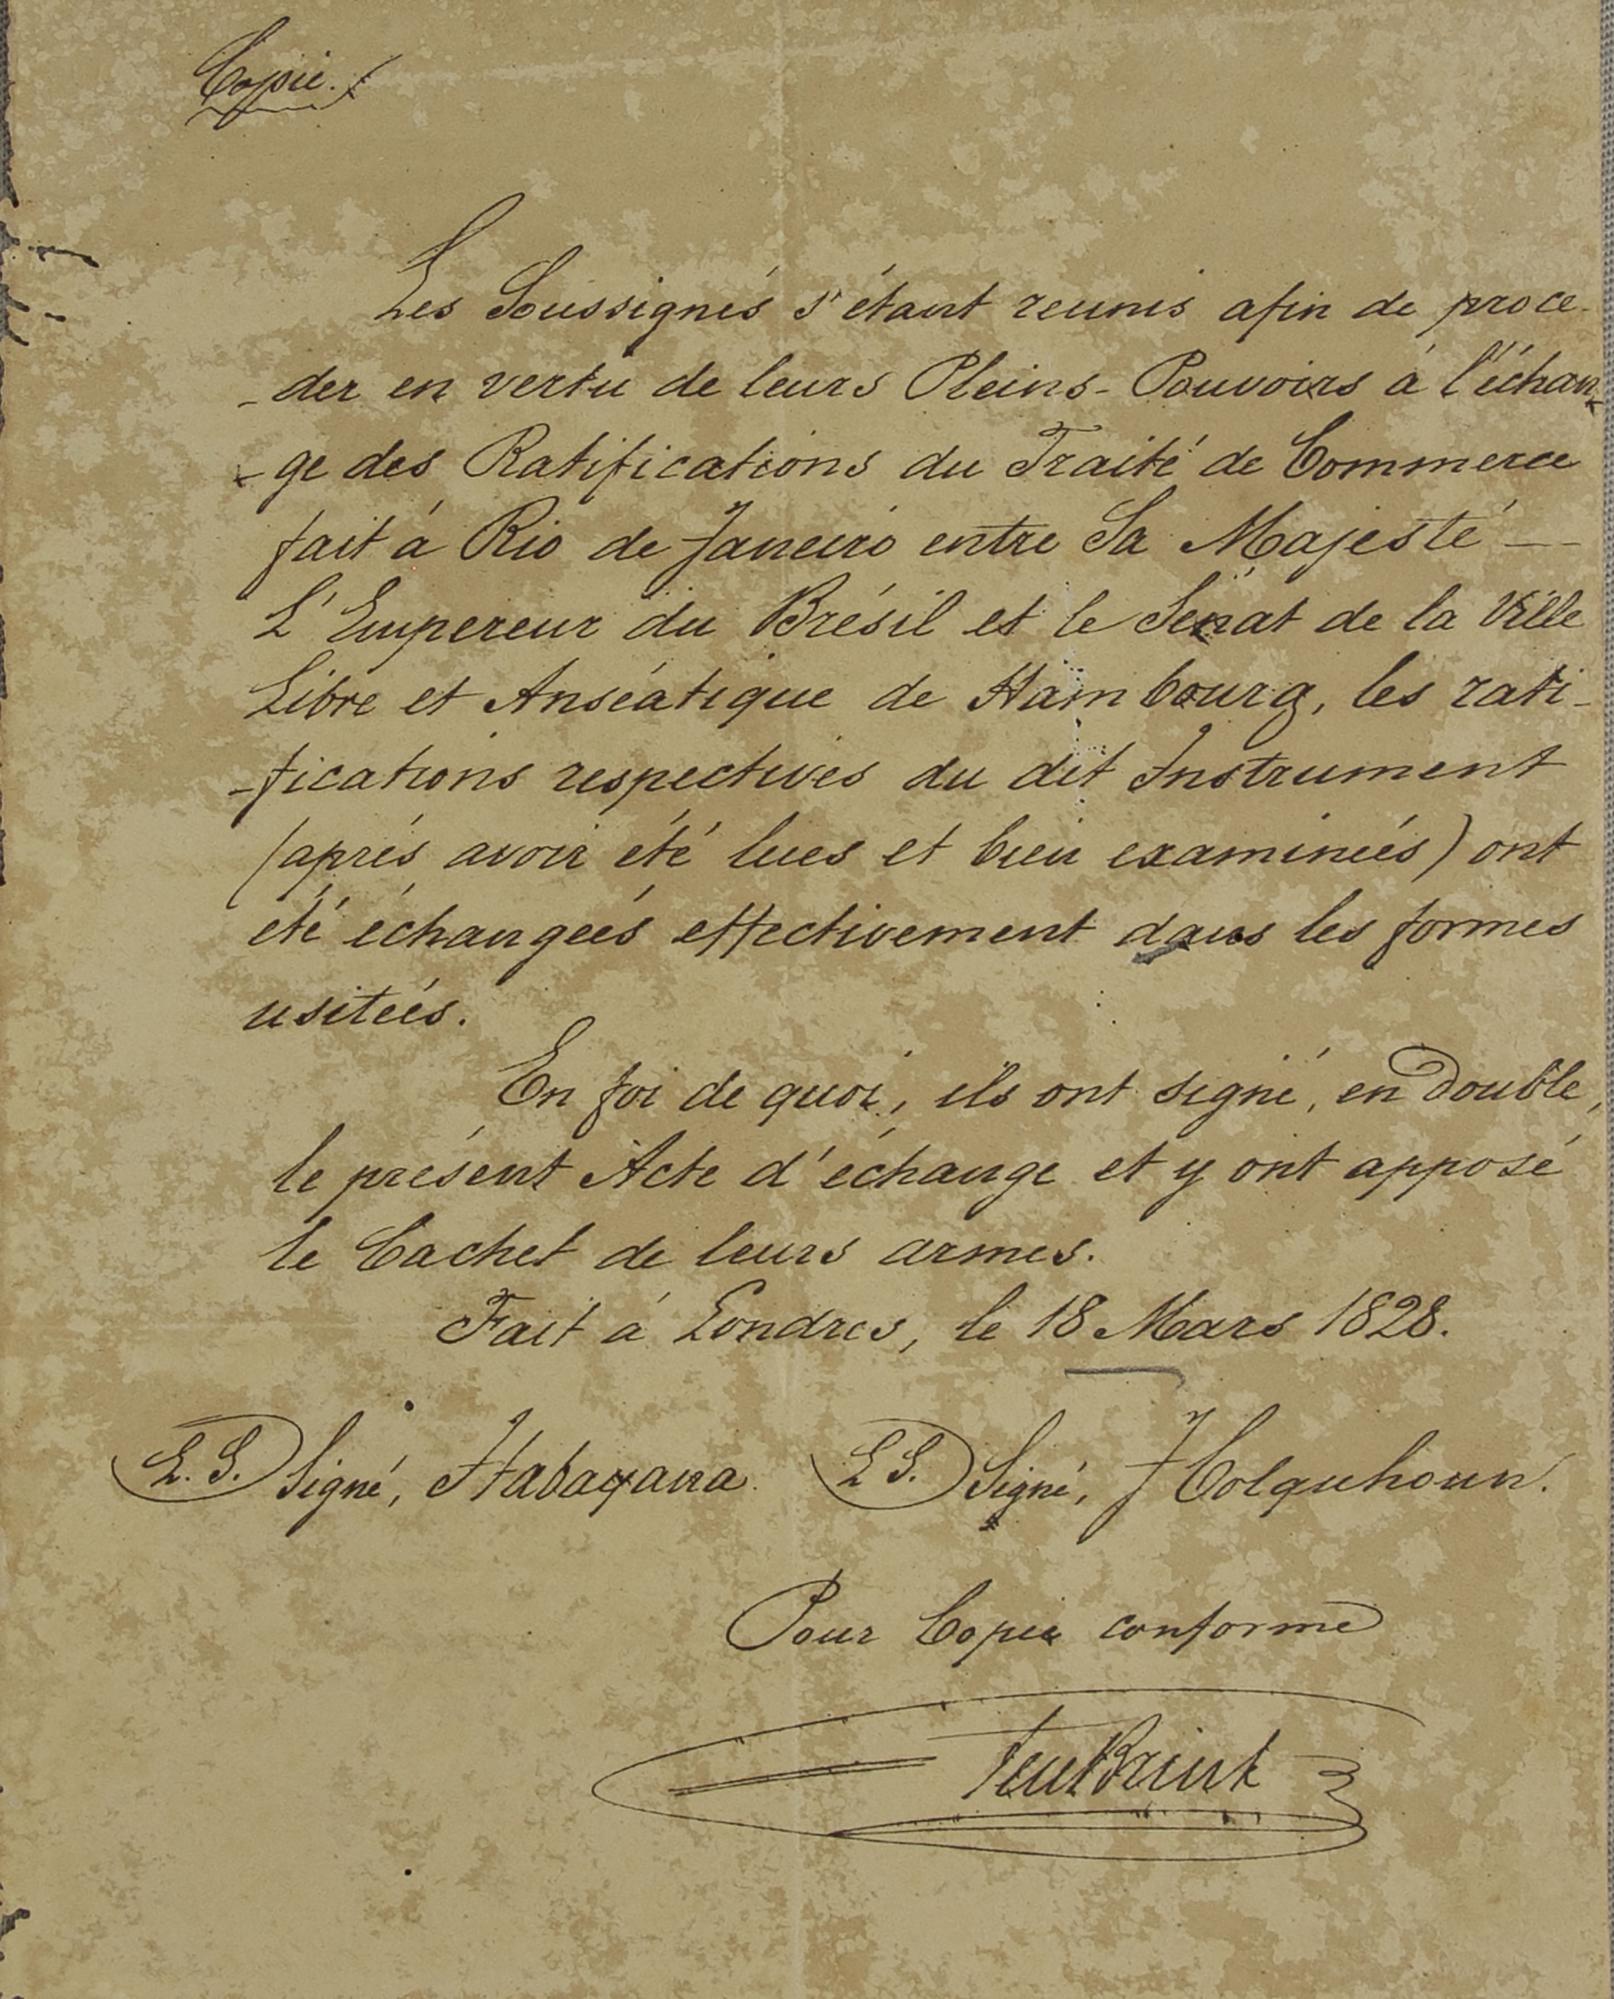 Copie.
Les Soussignés s'étant reunis afin de proce-
-der en vertu de leurs Pleins-Pouvoirs à l'échan-
-ge des Ratifications du Traité de Commerce
fait à Rio de Janeiro entre Sa Majesté —
L'Empereur du Brésil et le Sénat de la Ville
Libre et Anséatique de Hambourg, les rati-
-fications respectives du dit Instrument
(après avoir été lues et bien examinées) ont
été échangées effectivement dans les formes
usitées.
En foi de quoi, ils ont signé, en double,
le présent Acte d'échange et y ont apposé
le Cachet de leurs armes.
Fait à Londres, le 18 Mars 1828.
L. S. Signé, Itabayana. L S. Signé, J Colquhoun.
Pour Copie conforme